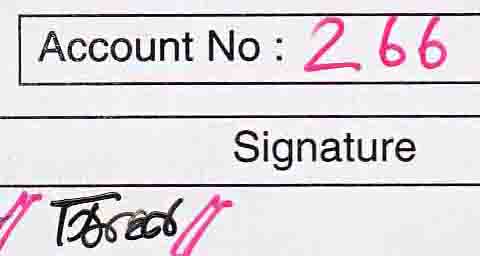 Account No : 266
Signature